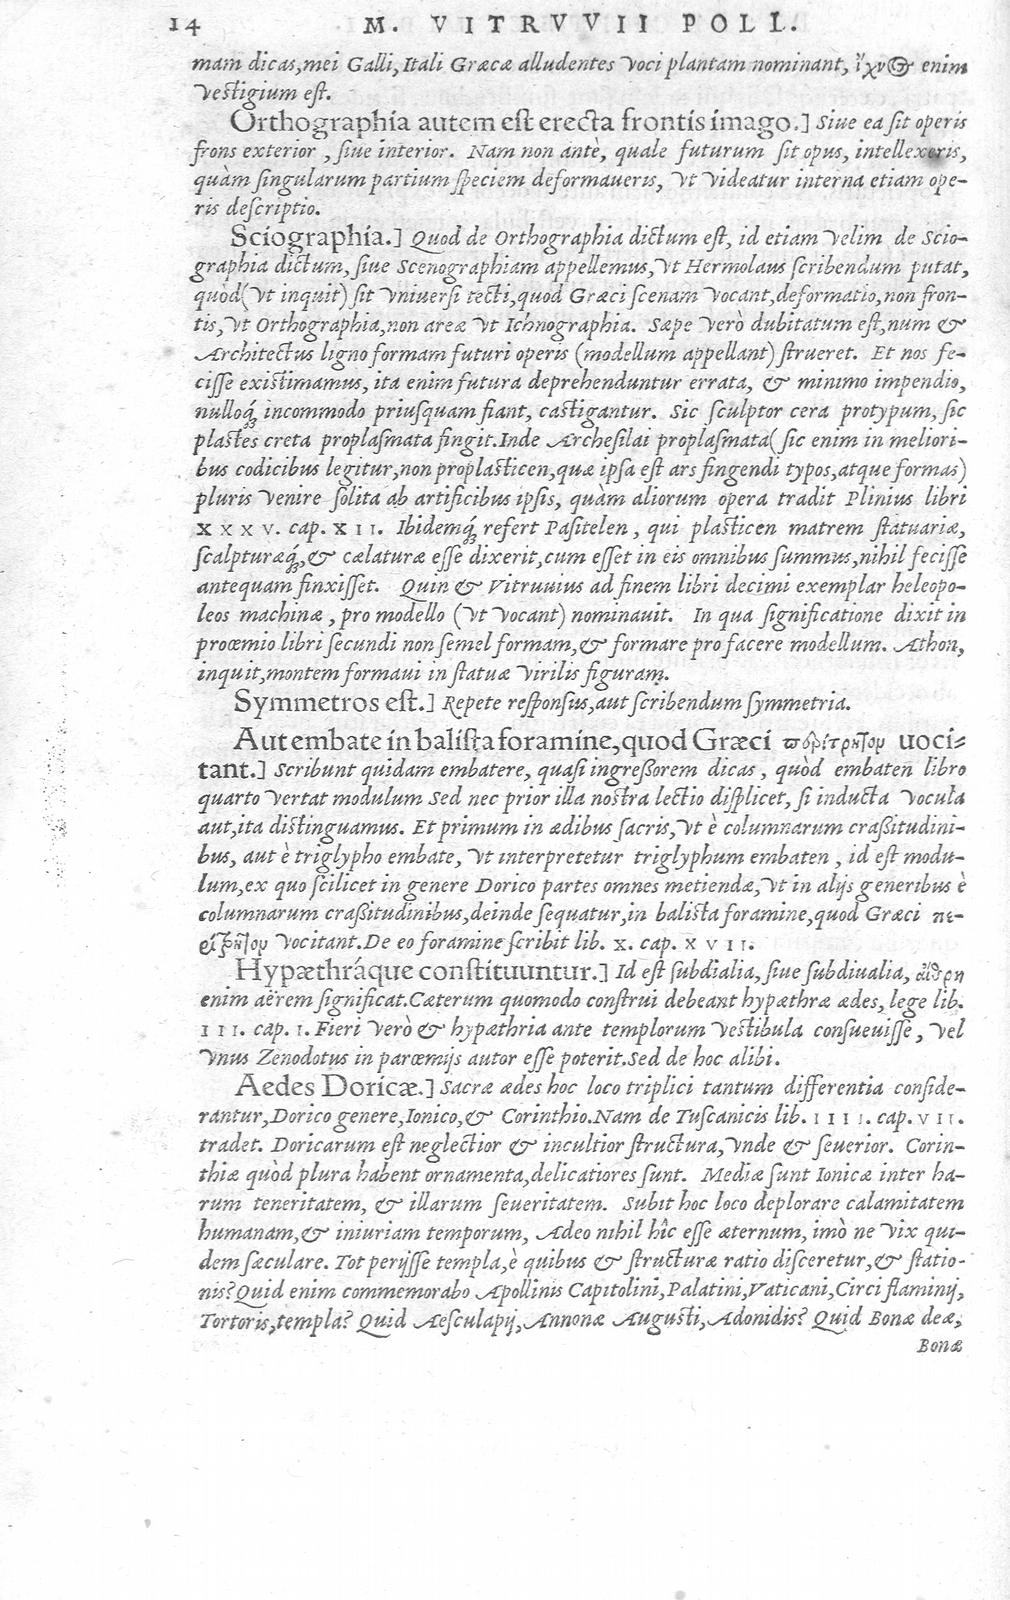 14 M. VITRVVII POLL.
mam dicas, mei Galli, Itali Græcæ alludentes voci plantam nominant, ἴχνος enim
vestigium est.
Orthographia autem est erecta frontis imago.] Siue ea sit operis
frons exterior, siue interior. Nam non antè, quale futurum sit opus, intellexeris,
quàm singularum partium speciem deformaueris, vt videatur interna etiam ope-
ris descriptio.
Sciographia.] Quod de Orthographia dictum est, id etiam velim de Scio-
graphia dictum, siue Scenographiam appellemus, vt Hermolaus scribendum putat,
quòd (vt inquit) sit vniuersi tecti, quod Græci scenam vocant, deformatio, non fron-
tis, vt Orthographia, non areæ vt Ichnographia. Sæpe verò dubitatum est, num &
Architectus ligno formam futuri operis (modellum appellant) strueret. Et nos fe-
cisse existimamus, ita enim futura deprehenduntur errata, & minimo impendio,
nulloq́; incommodo priusquam fiant, castigantur. Sic sculptor cera protypum, sic
plastes creta proplasmata fingit. Inde Archesilai proplasmata (sic enim in meliori-
bus codicibus legitur, non proplasticen, quæ ipsa est ars fingendi typos, atque formas)
pluris venire solita ab artificibus ipsis, quàm aliorum opera tradit Plinius libri
XXXV. cap. XII. Ibidemq́; refert Pasitelen, qui plasticen matrem statuariæ,
scalpturæq́;, & cælaturæ esse dixerit, cum esset in eis omnibus summus, nihil fecisse
antequam finxisset. Quin & Vitruuius ad finem libri decimi exemplar heleopo-
leos machinæ, pro modello (vt vocant) nominauit. In qua significatione dixit in
proœmio libri secundi non semel formam, & formare pro facere modellum. Athon,
inquit, montem formaui in statuæ virilis figuram.
Symmetros est.] Repete responsus, aut scribendum symmetria.
Aut embate in balista foramine, quod Græci περίτρητον uoci-
tant.] Scribunt quidam embatere, quasi ingreßorem dicas, quòd embaten libro
quarto vertat modulum Sed nec prior illa nostra lectio displicet, si inducta vocula
aut, ita distinguamus. Et primum in ædibus sacris, vt è columnarum craßitudini-
bus, aut è triglypho embate, vt interpretetur triglyphum embaten, id est modu-
lum, ex quo scilicet in genere Dorico partes omnes metiendæ, vt in alijs generibus è
columnarum craßitudinibus, deinde sequatur, in balista foramine, quod Græci πε-
ρίτρητον vocitant. De eo foramine scribit lib. X. cap. XVII.
Hypæthráque constituuntur.] Id est subdialia, siue subdiualia, αἴθρη
enim aërem significat. Cæterum quomodo construi debeant hypæthræ ædes, lege lib.
III. cap. I. Fieri verò & hypæthria ante templorum vestibula consueuisse, vel
vnus Zenodotus in parœmijs autor esse poterit. Sed de hoc alibi.
Aedes Doricæ.] Sacræ ædes hoc loco triplici tantum differentia conside-
rantur, Dorico genere, Ionico, & Corinthio. Nam de Tuscanicis lib. IIII. cap. VII.
tradet. Doricarum est neglectior & incultior structura, vnde & seuerior. Corin-
thiæ quòd plura habent ornamenta, delicatiores sunt. Mediæ sunt Ionicæ inter ha-
rum teneritatem, & illarum seueritatem. Subit hoc loco deplorare calamitatem
humanam, & iniuriam temporum, Adeo nihil hîc esse æternum, imò ne vix qui-
dem sæculare. Tot perijsse templa, è quibus & structuræ ratio disceretur, & statio-
nis? Quid enim commemorabo Apollinis Capitolini, Palatini, Vaticani, Circi flaminij,
Tortoris, templa? Quid Aesculapij, Annonæ Augusti, Adonidis? Quid Bonæ deæ,
Bonæ